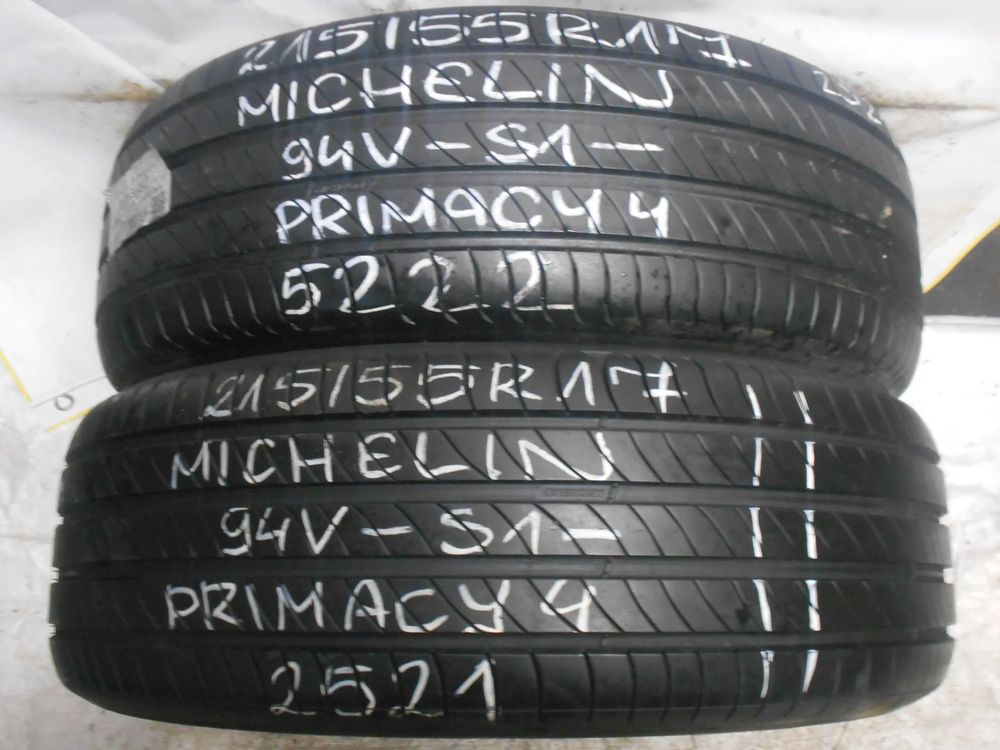 215/55R17
MICHELIN
94V-S1-
PRIMACY 4
5222
215/55R17
MICHELIN
94V-S1-
PRIMACY 4
2521